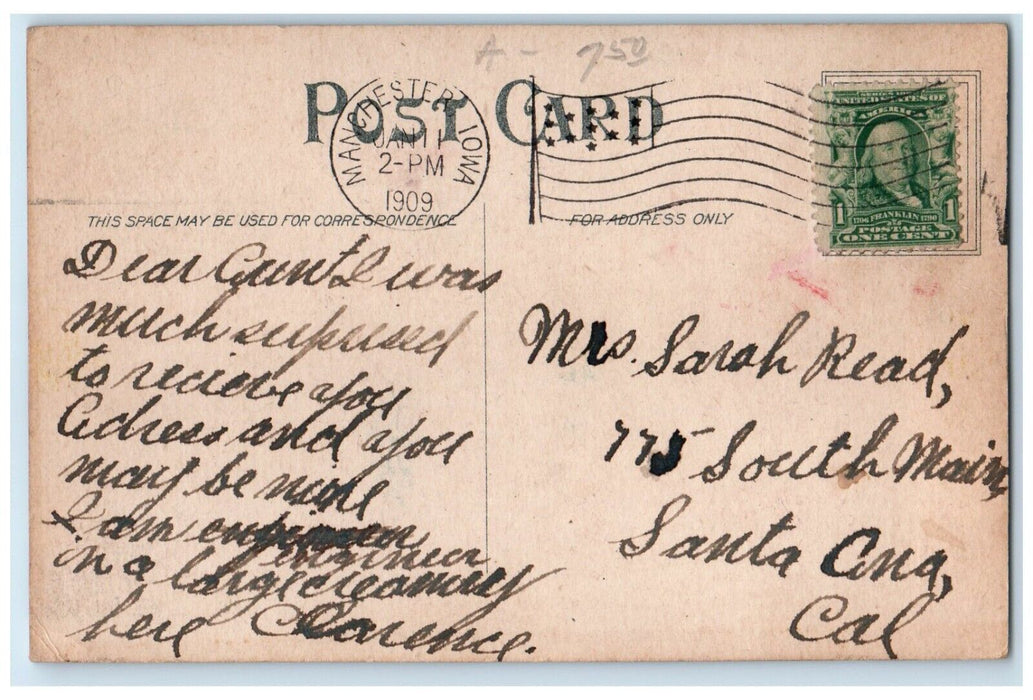 A - 7.50
POST CARD
MANCHESTER, IOWA
JAN 11
2-PM
1909
SERIES 1902
UNITED STATES OF
AMERICA
1706 FRANKLIN 1790
1 POSTAGE 1
ONE CENT
THIS SPACE MAY BE USED FOR CORRESPONDENCE
FOR ADDRESS ONLY
Dear Aunt I was
much supprised
to recieve you
Adress and you
may be mine
I am
engineer
in a large creamery
here Clarence.
Mrs. Sarah Read,
775 South Main,
Santa Ana,
Cal